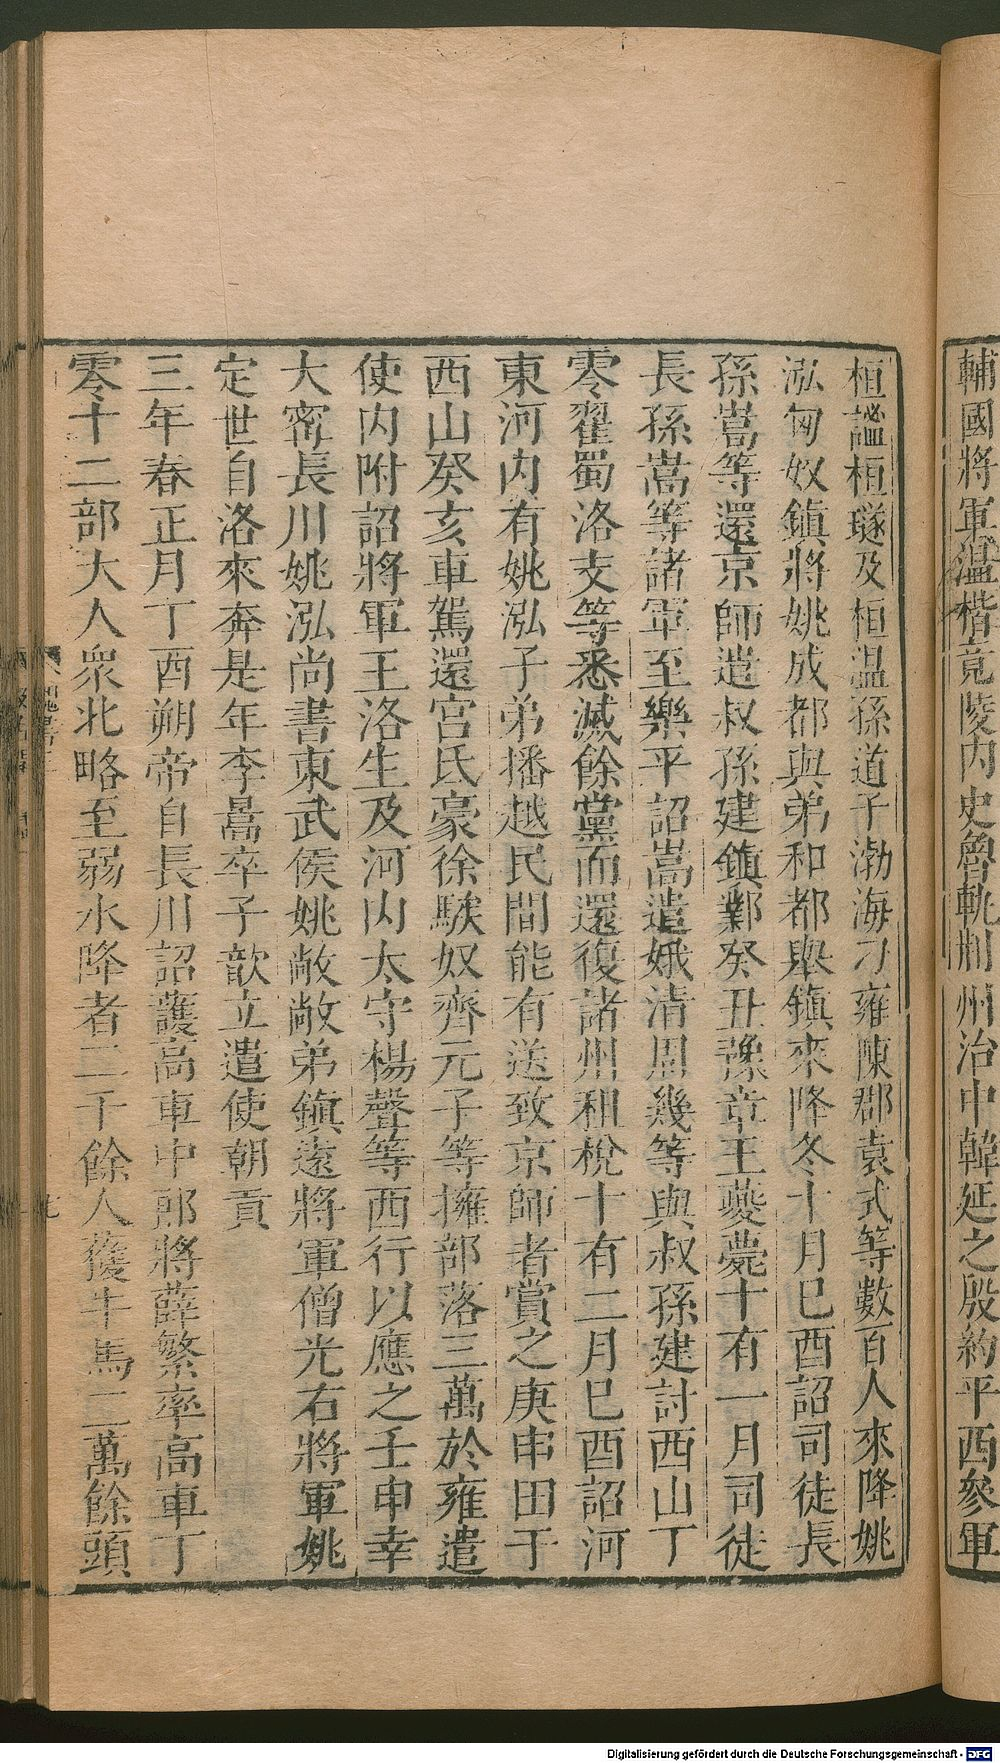 輔國將軍溫楷竟陵內史魯軌荆州治中韓延之殷約平西參軍
桓謐桓璲及桓溫孫道子渤海刁雍陳郡袁式等數百人來降姚
泓匈奴鎮將姚成都與弟和都舉鎮來降冬十月已酉詔司徒長
孫嵩等還京師遣叔孫建鎮鄴癸丑豫章王夔薨十有一月司徒
長孫嵩等諸軍至樂平詔嵩遣娥清周幾等與叔孫建討西山丁
零翟蜀洛支等悉滅餘黨而還復諸州租稅十有二月已酉詔河
東河內有姚泓子弟播越民間能有送致京師者賞之庚申田于
西山癸亥車駕還宮氐豪徐騃奴齊元子等擁部落三萬於雍遣
使內附詔將軍王洛生及河內太守楊聲等西行以應之壬申幸
大甯長川姚泓尚書東武侯姚敞敞弟鎮遠將軍僧光右將軍姚
定世自洛來奔是年李暠卒子歆立遣使朝貢
三年春正月丁酉朔帝自長川詔護高車中郎將薛繁率高車丁
零十二部大人衆北略至弱水降者二千餘人獲牛馬二萬餘頭
Digitalisierung gefördert durch die Deutsche Forschungsgemeinschaft - DFG